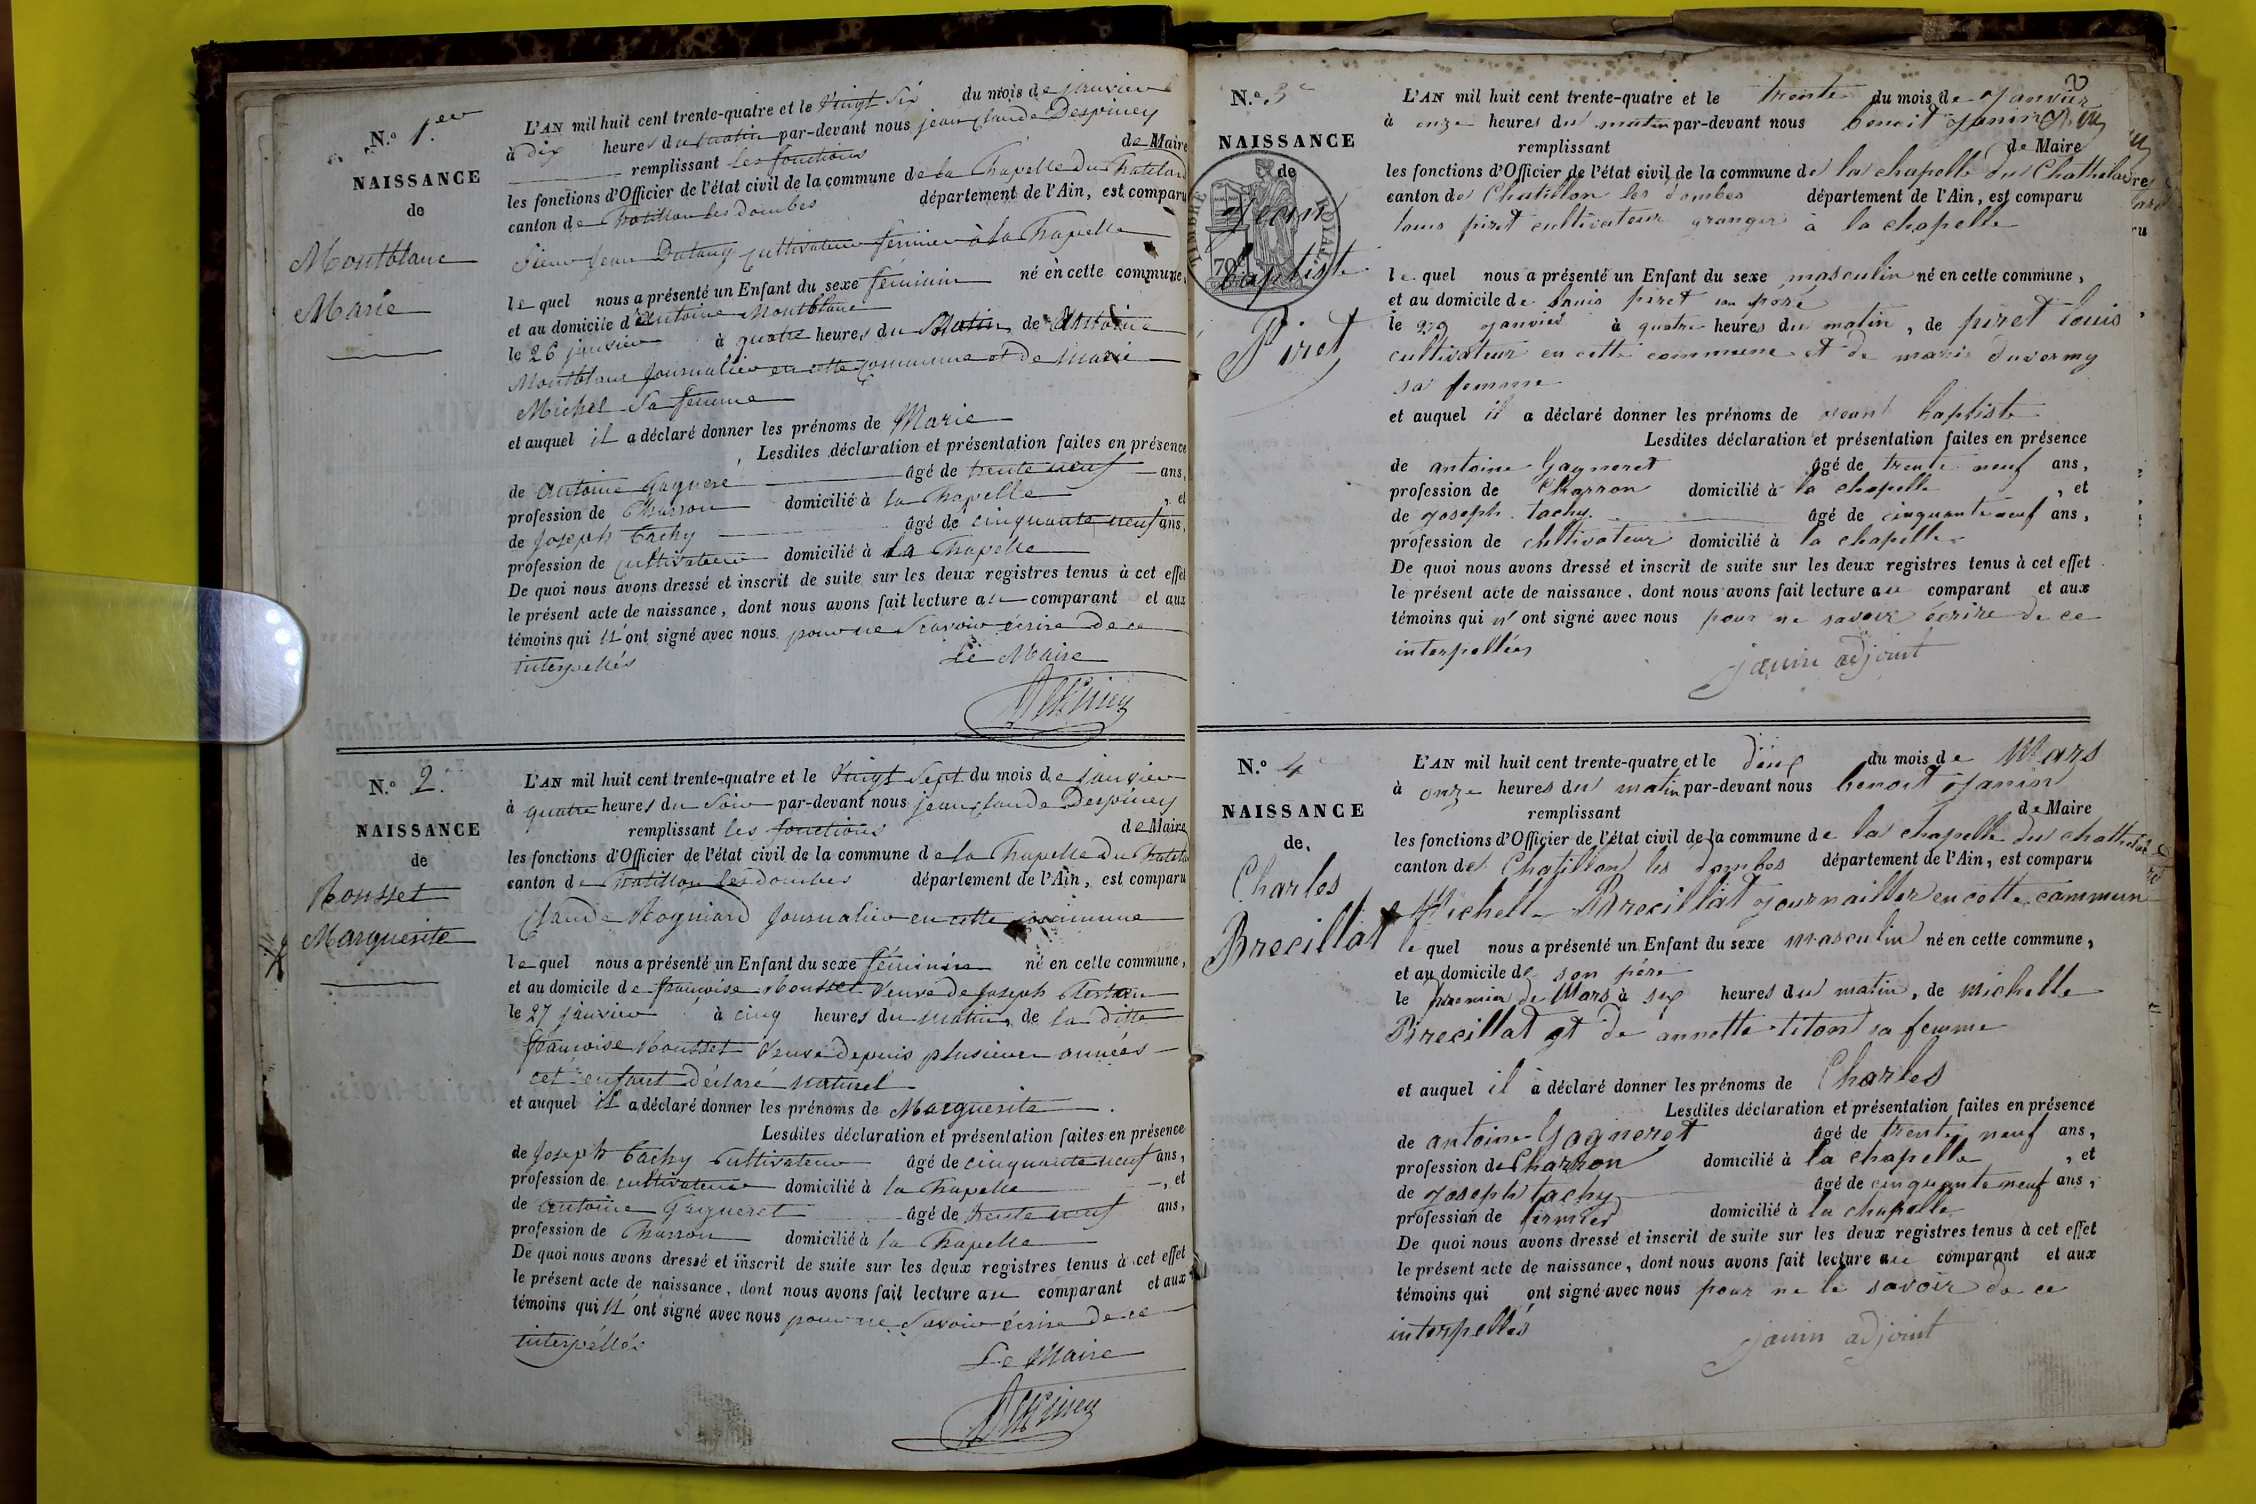 N.º 1.er
NAISSANCE
de
Montblanc
Marie
L'AN mil huit cent trente-quatre et le vingt six du mois de janvier
à dix heures du matin par-devant nous jean Claude Despiney
remplissant les fonctions de Maire
les fonctions d'Officier de l'état civil de la commune de la Chapelle du Chatelard
canton de Chatillon les dombes département de l'Ain, est comparu
Sieur Jean Cultivateur fermier à la Chapelle
le quel nous a présenté un Enfant du sexe féminin né en cette commune,
et au domicile d'antoine Montblanc
le 26 janvier à quatre heures du Matin, de Antoine
Montblanc Journalier en cette commune et de Marie
Michel Sa femme
et auquel il a déclaré donner les prénoms de Marie
Lesdites déclaration et présentation faites en présence
de antoine Gagneré âgé de trente neuf ans,
profession de Charron domicilié à la Chapelle, et
de Joseph Tachy âgé de cinquante neuf ans,
profession de cultivateur domicilié à la Chapelle
De quoi nous avons dressé et inscrit de suite sur les deux registres tenus à cet effet
le présent acte de naissance, dont nous avons fait lecture au comparant et aux
témoins qui n'ont signé avec nous pour ne Scavoir écrire de ce
interpellés
Le Maire
Despiney
N.º 2.
NAISSANCE
de
Rousset
Marguerite
L'AN mil huit cent trente-quatre et le vingt Sept du mois de janvier
à quatre heures du Soir par-devant nous jean Claude Despiney
remplissant les fonctions de Maire
les fonctions d'Officier de l'état civil de la commune de la Chapelle du Chatela
canton de Chatillon les dombes département de l'Ain, est comparu
Claude Rogniard Journalier en cette commune
le quel nous a présenté un Enfant du sexe féminin né en cette commune,
et au domicile de françoise Rousset Veuve de Joseph
le 27 janvier à cinq heures du matin, de la ditte
françoise Rousset Veuve depuis plusieurs années
cet enfant déclaré naturel
et auquel il a déclaré donner les prénoms de Marguerite.
Lesdites déclaration et présentation faites en présence
de Joseph Tachy Cultivateur âgé de cinquante neuf ans,
profession de cultivateur domicilié à la Chapelle, et
de antoine Gagneret âgé de trente neuf ans,
profession de Charron domicilié à la Chapelle
De quoi nous avons dressé et inscrit de suite sur les deux registres tenus à cet effet
le présent acte de naissance, dont nous avons fait lecture au comparant et aux
témoins qui n'ont signé avec nous pour ne Savoir écrire de ce
interpellés
Le Maire
Despiney
2
N.º 3e
NAISSANCE
de
TIMBRE ROYAL
70c
Jean
baptiste
Piret
L'AN mil huit cent trente-quatre et le trente du mois de Janvier
à onze heures du matin par-devant nous benoit Janin
remplissant de Maire
les fonctions d'Officier de l'état civil de la commune de la chapelle du Chathelard
canton de Chatillon les dombes département de l'Ain, est comparu
louis piret cultivateur granger à la chapelle
le quel nous a présenté un Enfant du sexe masculin né en cette commune,
et au domicile de louis piret son pére
le 29 janvier à quatre heures du matin, de piret louis
cultivateur en cette commune et de marie duvermy
sa femme
et auquel il a déclaré donner les prénoms de jean baptiste
Lesdites déclaration et présentation faites en présence
de antoine Gagneret âgé de trente neuf ans,
profession de Charron domicilié à la chapelle, et
de joseph tachy âgé de cinquante neuf ans,
profession de cultivateur domicilié à la chapelle
De quoi nous avons dressé et inscrit de suite sur les deux registres tenus à cet effet
le présent acte de naissance, dont nous avons fait lecture au comparant et aux
témoins qui n'ont signé avec nous pour ne savoir écrire de ce
interpellées
janin adjoint
N.º 4e
NAISSANCE
de
Charles
Brecillat
L'AN mil huit cent trente-quatre et le deux du mois de Mars
à onze heures du matin par-devant nous benoit Janin
remplissant de Maire
les fonctions d'Officier de l'état civil de la commune de la chapelle du chathelard
canton de Chatillon les dombes département de l'Ain, est comparu
Michelle Brecillat journaillier en cette commun
le quel nous a présenté un Enfant du sexe masculin né en cette commune,
et au domicile de son pére
le premier de Mars à six heures du matin, de michelle
Brecillat et de annette titon sa femme
et auquel il a déclaré donner les prénoms de Charles
Lesdites déclaration et présentation faites en présence
de antoine Gagneret âgé de trente neuf ans,
profession de Charron domicilié à la chapelle, et
de joseph tachy âgé de cinquante neuf ans,
profession de fermier domicilié à la chapelle
De quoi nous avons dressé et inscrit de suite sur les deux registres tenus à cet effet
le présent acte de naissance, dont nous avons fait lecture au comparant et aux
témoins qui ont signé avec nous pour ne le savoir de ce
interpellés
janin adjoint